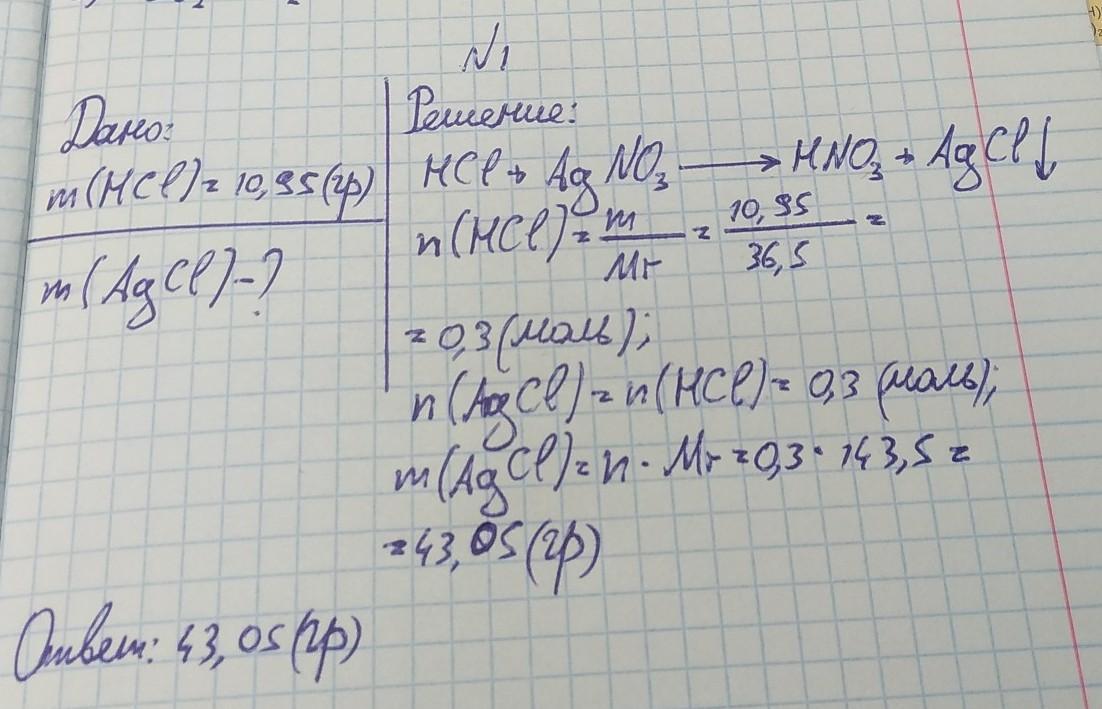 №1
Дано:
m(HCl)=10,95(гр)
m(AgCl)-?
Решение:
HCl + AgNO₃ → HNO₃ + AgCl↓
n(HCl) = m/Mr = 10,95/36,5 =
= 0,3 (моль);
n(AgCl) = n(HCl) = 0,3 (моль);
m(AgCl) = n · Mr = 0,3 · 143,5 =
= 43,05 (гр)
Ответ: 43,05 (гр)